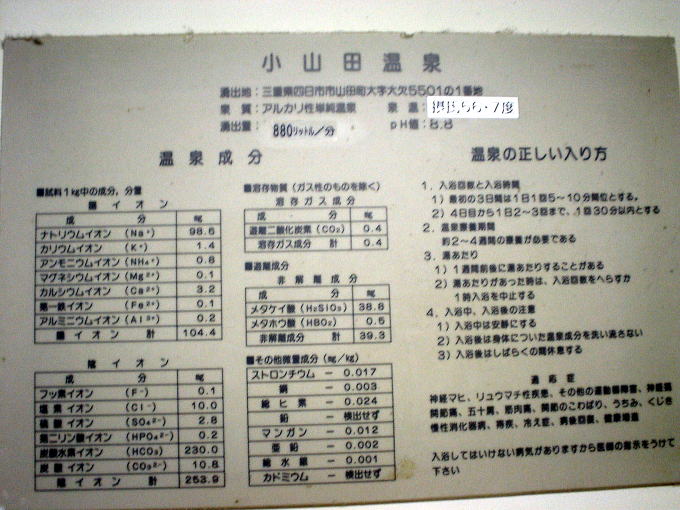 小山田温泉
湧出地：三重県四日市市山田町大字大欠5501の1番地
泉質：アルカリ性単純温泉 泉温：摂氏56・7度
湧出量：880リットル/分 pH値：8.8
温泉成分
■試料1kg中の成分，分量
陽イオン
成分 mg
ナトリウムイオン (Na⁺) 98.6
カリウムイオン (K⁺) 1.4
アンモニウムイオン (NH₄⁺) 0.8
マグネシウムイオン (Mg²⁺) 0.1
カルシウムイオン (Ca²⁺) 3.2
第一鉄イオン (Fe²⁺) 0.1
アルミニウムイオン (Al³⁺) 0.2
陽イオン計 104.4
陰イオン
成分 mg
フッ素イオン (F⁻) 0.1
塩素イオン (Cl⁻) 10.0
硫酸イオン (SO₄²⁻) 2.8
第二リン酸イオン (HPO₄²⁻) 0.2
炭酸水素イオン (HCO₃) 230.0
炭酸イオン (CO₃²⁻) 10.8
陰イオン計 253.9
■溶存物質（ガス性のものを除く）
溶存ガス成分
成分 mg
遊離二酸化炭素 (CO₂) 0.4
溶存ガス成分計 0.4
■遊離成分
非解離成分
成分 mg
メタケイ酸 (H₂SiO₃) 38.8
メタホウ酸 (HBO₂) 0.5
非解離成分計 39.3
■その他微量成分 (mg/kg)
ストロンチウム － 0.017
銅 － 0.003
総ヒ素 － 0.024
鉛 － 検出せず
マンガン － 0.012
亜鉛 － 0.002
総水銀 － 0.001
カドミウム － 検出せず
温泉の正しい入り方
1．入浴回数と入浴時間
1）最初の3日間は1日1回5～10分間位とする。
2）4日目から1日2～3回まで、1回30分以内とする
2．温泉療養期間
約2～4週間の療養が必要である
3．湯あたり
1）1週間前後に湯あたりすることがある
2）湯あたりがあった時は、入浴回数をへらすか
1時入浴を中止する
4．入浴中、入浴後の注意
1）入浴中は安静にする
2）入浴後は身体についた温泉成分を洗い流さない
3）入浴後はしばらくの間休息する
適応症
神経マヒ、リュウマチ性疾患、その他の運動器障害、神経痛
関節痛、五十肩、筋肉痛、関節のこわばり、うちみ、くじき
慢性消化器病、痔疾、冷え症、病後回復、健康増進
入浴してはいけない病気がありますから医師の指示をうけて
下さい